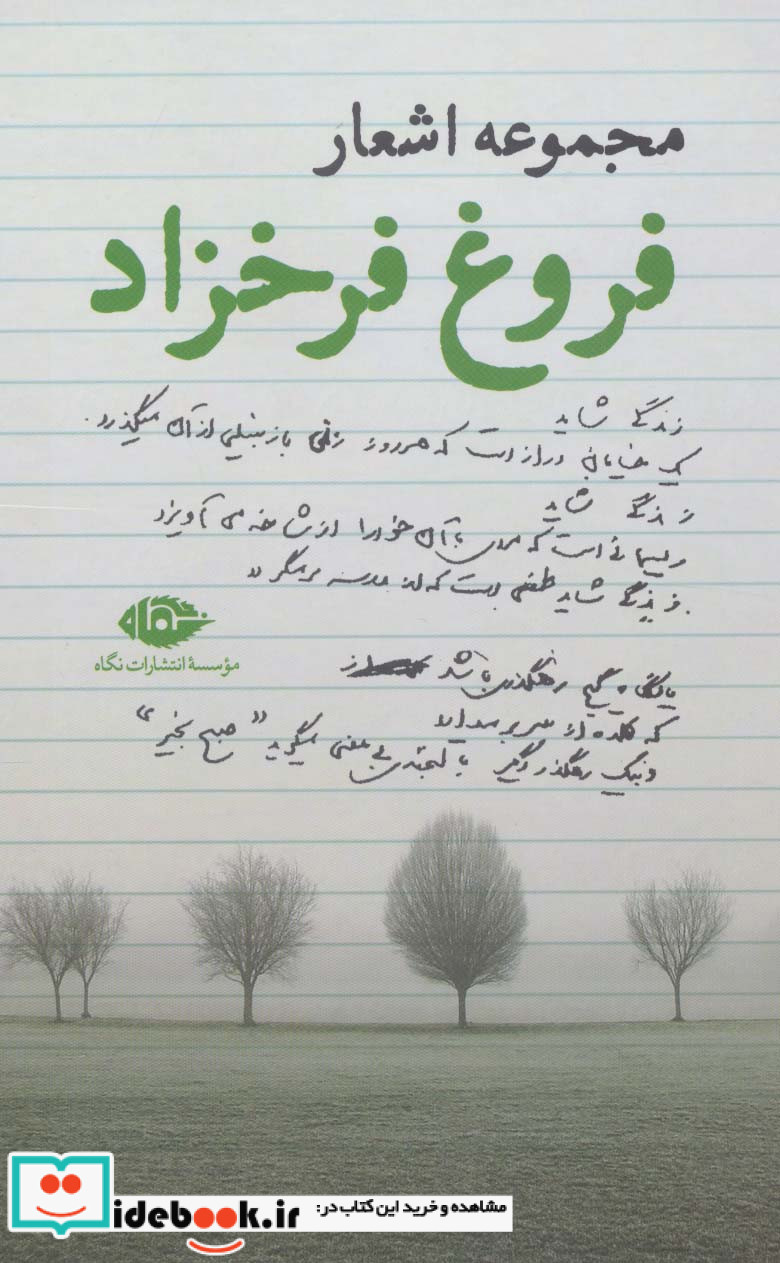 مجموعه اشعار
فروغ فرخزاد
زندگی شاید
یک خیابان درازست که هر روز زنی با زنبیلی از آن میگذرد.
زندگی شاید
ریسمانی است که مردی با آن خود را از شاخه می آویزد
زندگی شاید طفلی است که از مدرسه بر میگردد
نگاه
مؤسسهٔ انتشارات نگاه
یا نگاه گیج رهگذری باشد
که کلاه از سر بر میدارد
و بیک رهگذر دیگر با لبخندی بی معنی میگوید "صبح بخیر"
مشاهده و خرید این کتاب در:
idebook.ir